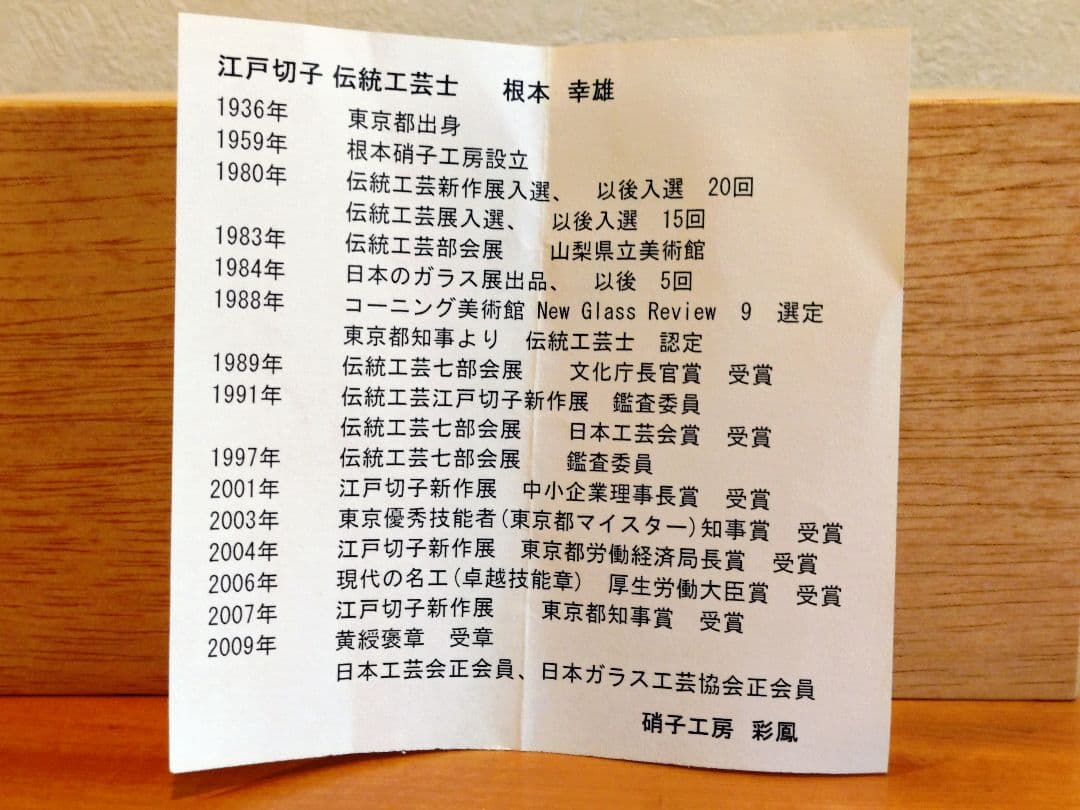 江戸切子 伝統工芸士 根本 幸雄
1936年 東京都出身
1959年 根本硝子工房設立
1980年 伝統工芸新作展入選、 以後入選 20回
伝統工芸展入選、 以後入選 15回
1983年 伝統工芸部会展 山梨県立美術館
1984年 日本のガラス展出品、 以後 5回
1988年 コーニング美術館 New Glass Review 9 選定
東京都知事より 伝統工芸士 認定
1989年 伝統工芸七部会展 文化庁長官賞 受賞
1991年 伝統工芸江戸切子新作展 鑑査委員
伝統工芸七部会展 日本工芸会賞 受賞
1997年 伝統工芸七部会展 鑑査委員
2001年 江戸切子新作展 中小企業理事長賞 受賞
2003年 東京優秀技能者(東京都マイスター)知事賞 受賞
2004年 江戸切子新作展 東京都労働経済局長賞 受賞
2006年 現代の名工(卓越技能章) 厚生労働大臣賞 受賞
2007年 江戸切子新作展 東京都知事賞 受賞
2009年 黄綬褒章 受章
日本工芸会正会員、日本ガラス工芸協会正会員
硝子工房 彩鳳